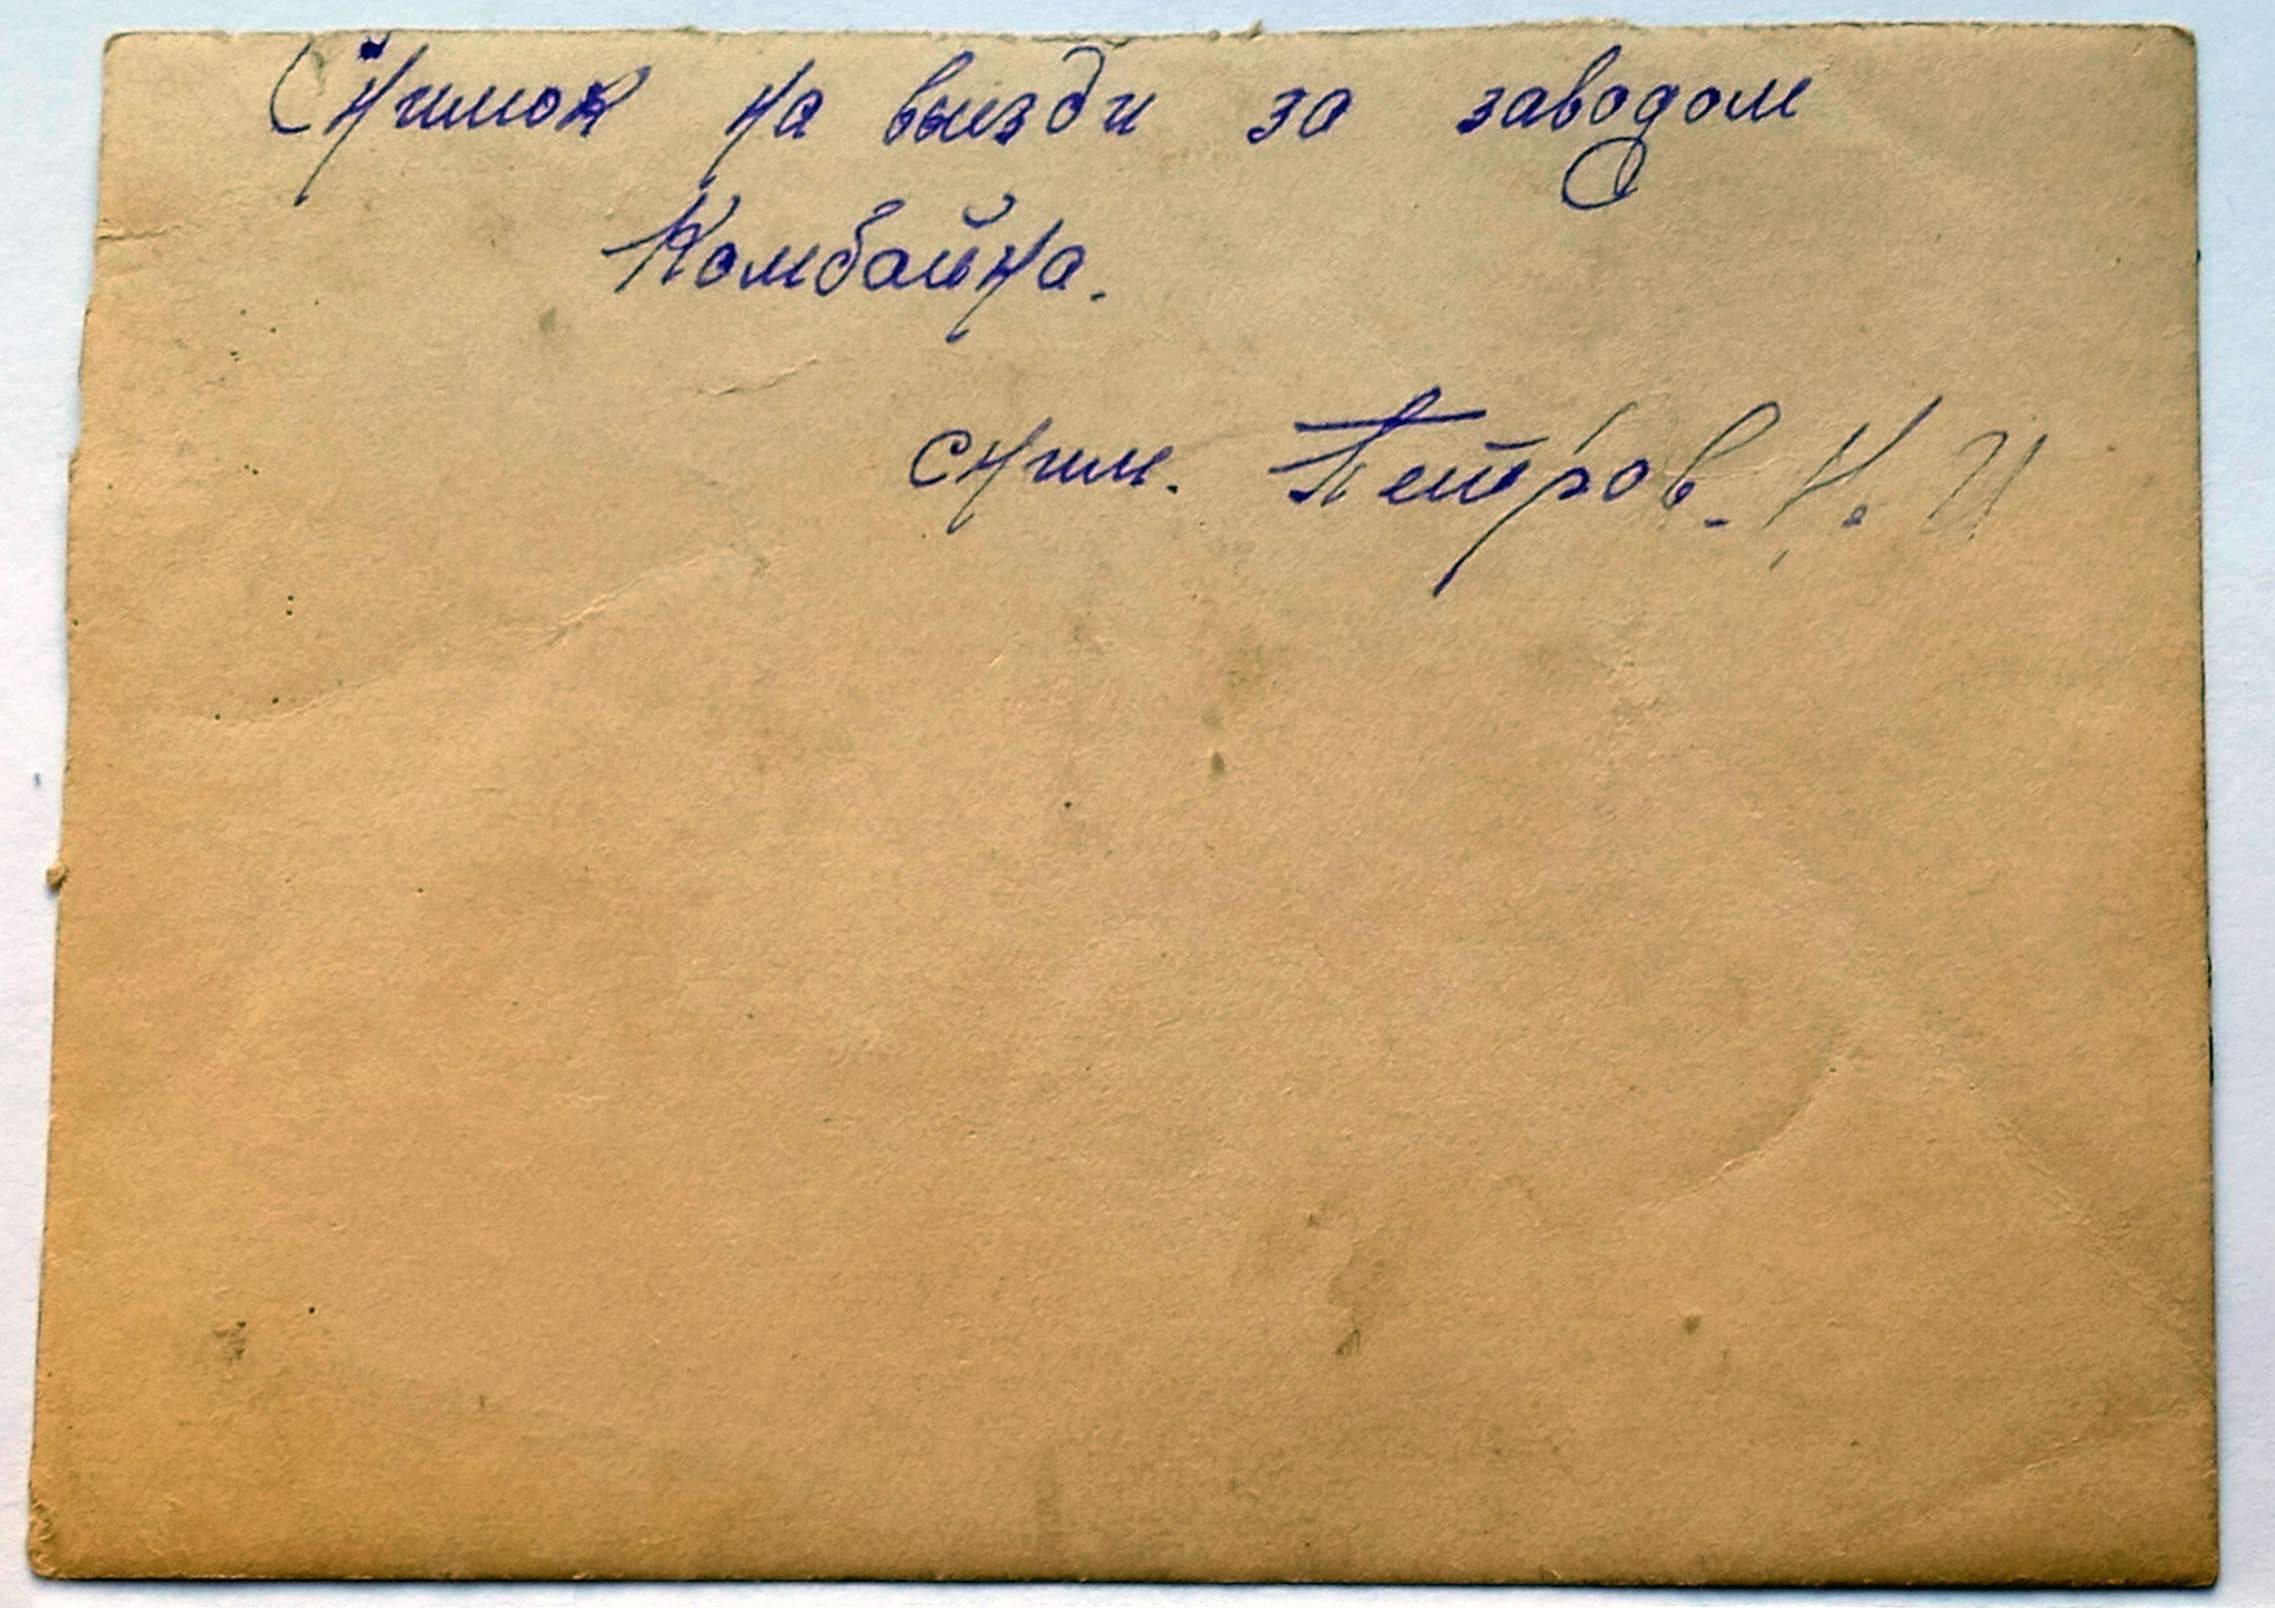 Снимок на выезди за заводом
Комбайна.
сним. Петров. Н. И